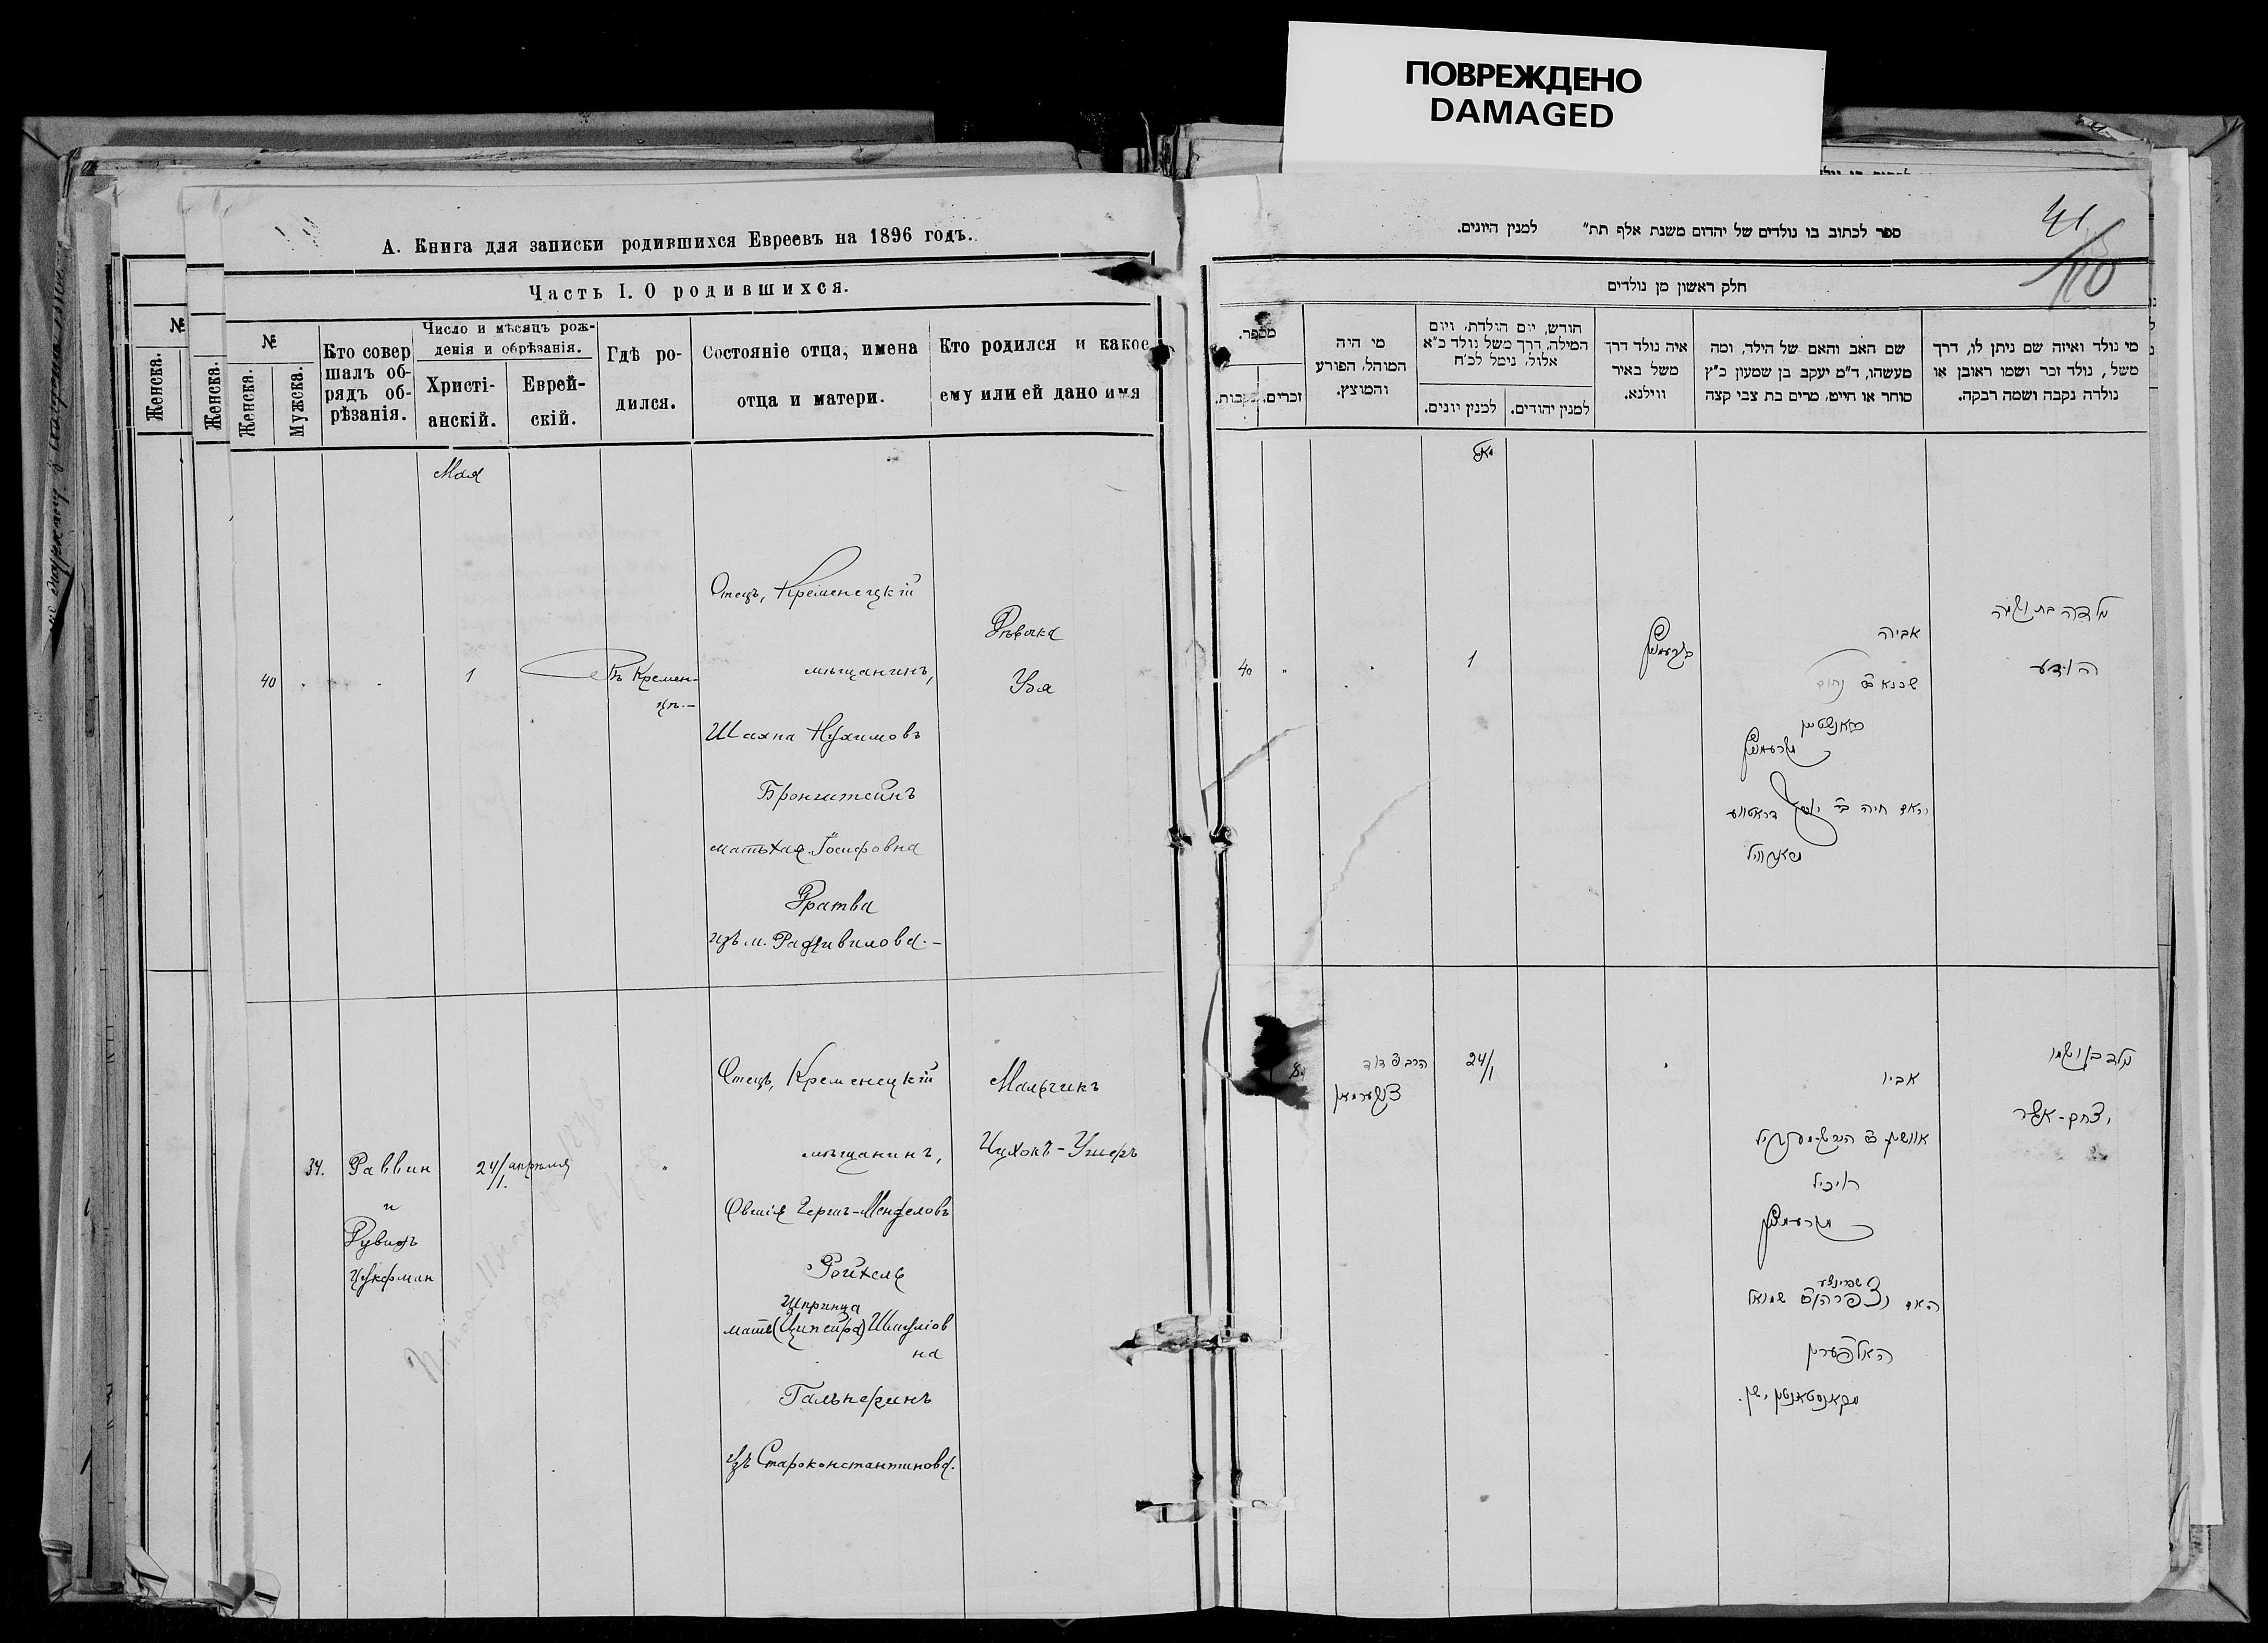 ПОВРЕЖДЕНО
DAMAGED
А. Книга для записки родившихся Евреевъ на 1896 годъ.
Часть I. О родившихся.
№
Женска.
Женска.
№
Женска.
Мужска.
Кто совер
шалъ об-
рядъ об-
рѣзанія.
Число и мѣсяцъ рож-
денія и обрѣзанія.
Христі-
анскій.
Еврей-
скій.
Гдѣ ро-
дился.
Состояніе отца, имена
отца и матери.
Кто родился и какое
ему или ей дано имя
Мая
40
1
Въ Кремен-
цѣ.—
Отецъ, Кременецкій
мѣщанинъ,
Шахна Нухимовъ
Бронштейнъ
мать Хая Іосифовна
Ратва
изъ м. Радзивилова.—
Дѣвочка
Удя
34.
Раввин
и
Рувинъ
Цукерман
24/1. апрѣля
Отецъ, Кременецкій
мѣщанинъ,
Овшія Герш-Менделовъ
Ройхель
Шпринца
мать (Ципейра) Шмуліов
на
Гальперинъ
изъ Староконстантинова.
Мальчикъ
Ицхокъ-Ушеръ
41
110
ספר לכתוב בו נולדים של יהדום משנת אלף תת״ למנין היונים.
חלק ראשון מן נולדים
מספר.
זכרים.
מי היה
המוהל, הפורע
והמוצץ.
חודש, יום הולדת, ויום
המילה, דרך משל נולד כ״א
אלול, נימל לכ״ח
למנין יונים.
למנין יהודים.
איה נולד דרך
משל באיר
ווילנא.
שם האב והאם של הילד, ומה
מעשהו, ד״מ יעקב בן שמעון כ״ץ
סוחר או חייט, מרים בת צבי קצה
מי נולד ואיזה שם ניתן לו, דרך
משל, נולד זכר ושמו ראובן או
נולדה נקבה ושמה רבקה.
מאי
40
1
אביה
שכנא ב״ר נחום
בראנשטיין
מקרעמניץ
האם חיה ב״ר יוסף דראטווע
ילדה בת ושמה
הודיע
הרב ור׳ דוד
צוקערמאן
24/1
אביו
אוושיע ב״ר הירש-מענדיל
רויכיל
מקרעמניץ
שפרינצע
האם צפרה ב״ר שמואל
האלפערין
מקאנסטאנטין ישן.
ילד בן ושמו
יצחק-אשר